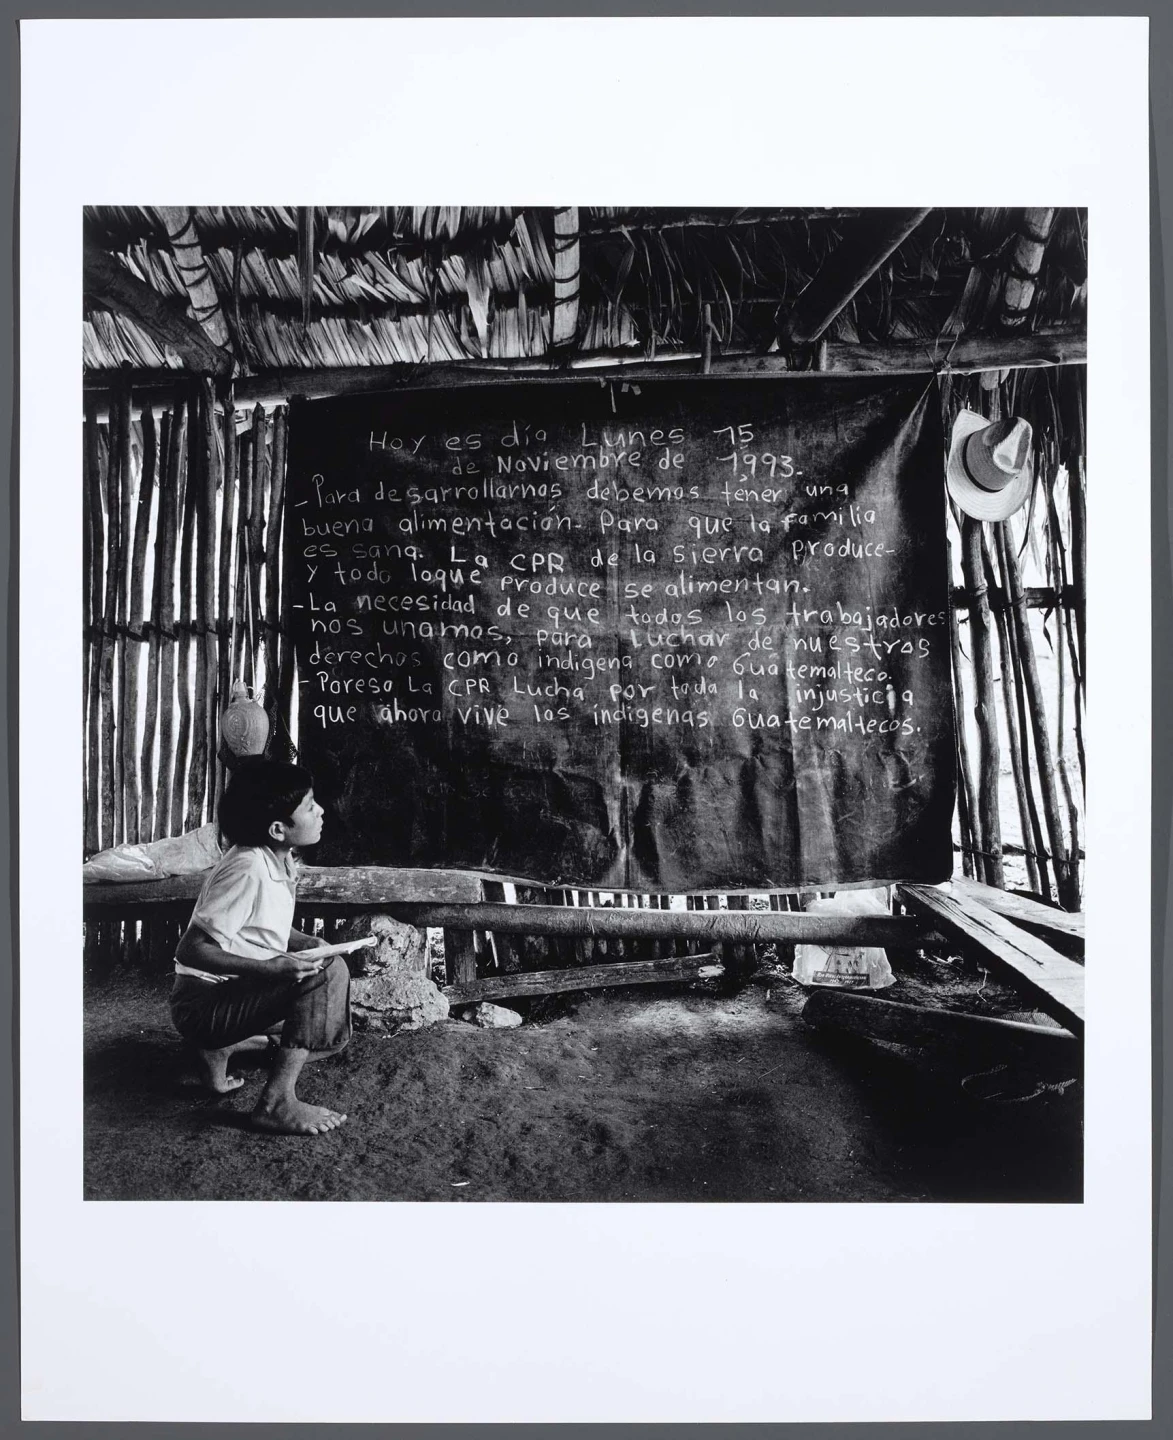 Hoy es día Lunes 15
de Noviembre de 1993.
- Para desarrollarnos debemos tener una
buena alimentación- Para que la familia
es sana. La CPR de la sierra produce-
y todo loque produce se alimentan.
- La necesidad de que todos los trabajadores
nos unamos, para luchar de nuestros
derechos como indigena como Guatemalteco.
- Poreso La CPR Lucha por toda la injusticia
que ahora vive los indigenas Guatemaltecos.